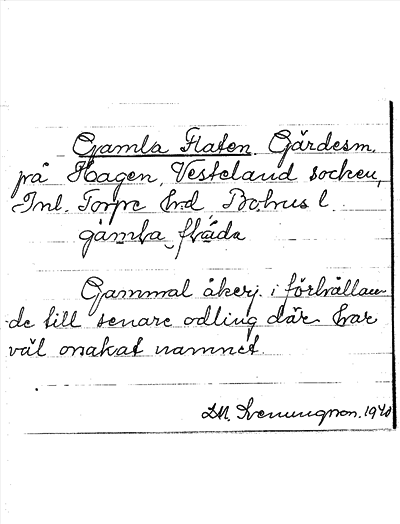 Gamla Flaten. Gärdesm.
på Hagen, Vesteland socken,
Inl. Torpe hd Bohus l.
gàmba_flàda
Gammal åkerj. i förhållan-
de till senare odling där har
väl orsakat namnet
D.M. Svenungson. 1940